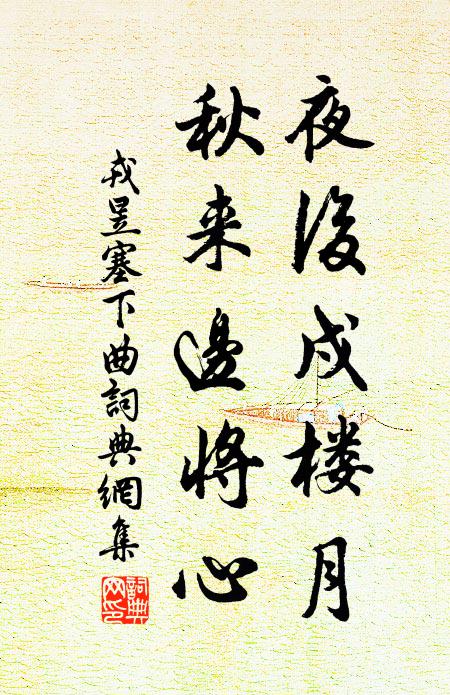 夜後戍楼月
秋来邊將心
戎昱塞下曲詞典網集
詞典网印